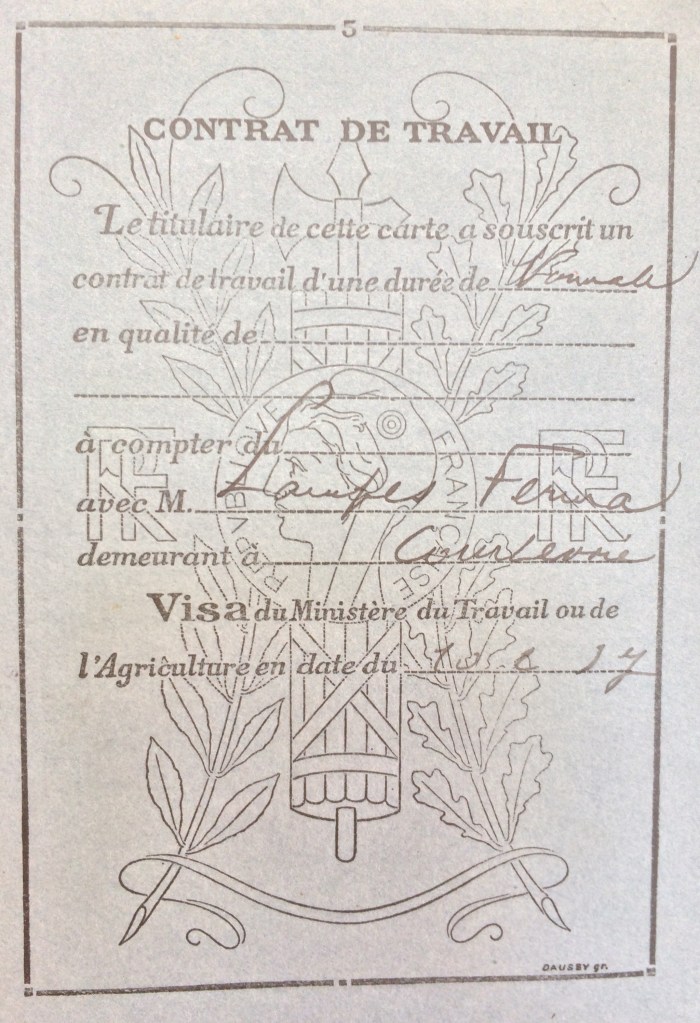 5
CONTRAT DE TRAVAIL
Le titulaire de cette carte a souscrit un
contrat de travail d'une durée de
en qualité de
à compter du
avec M. Lampes Ferra
demeurant à Courbevoie
Visa du Ministère du Travail ou de
l'Agriculture en date du
REPVBLIQVE FRANÇAISE
RF
RF
DAUSSY gr.